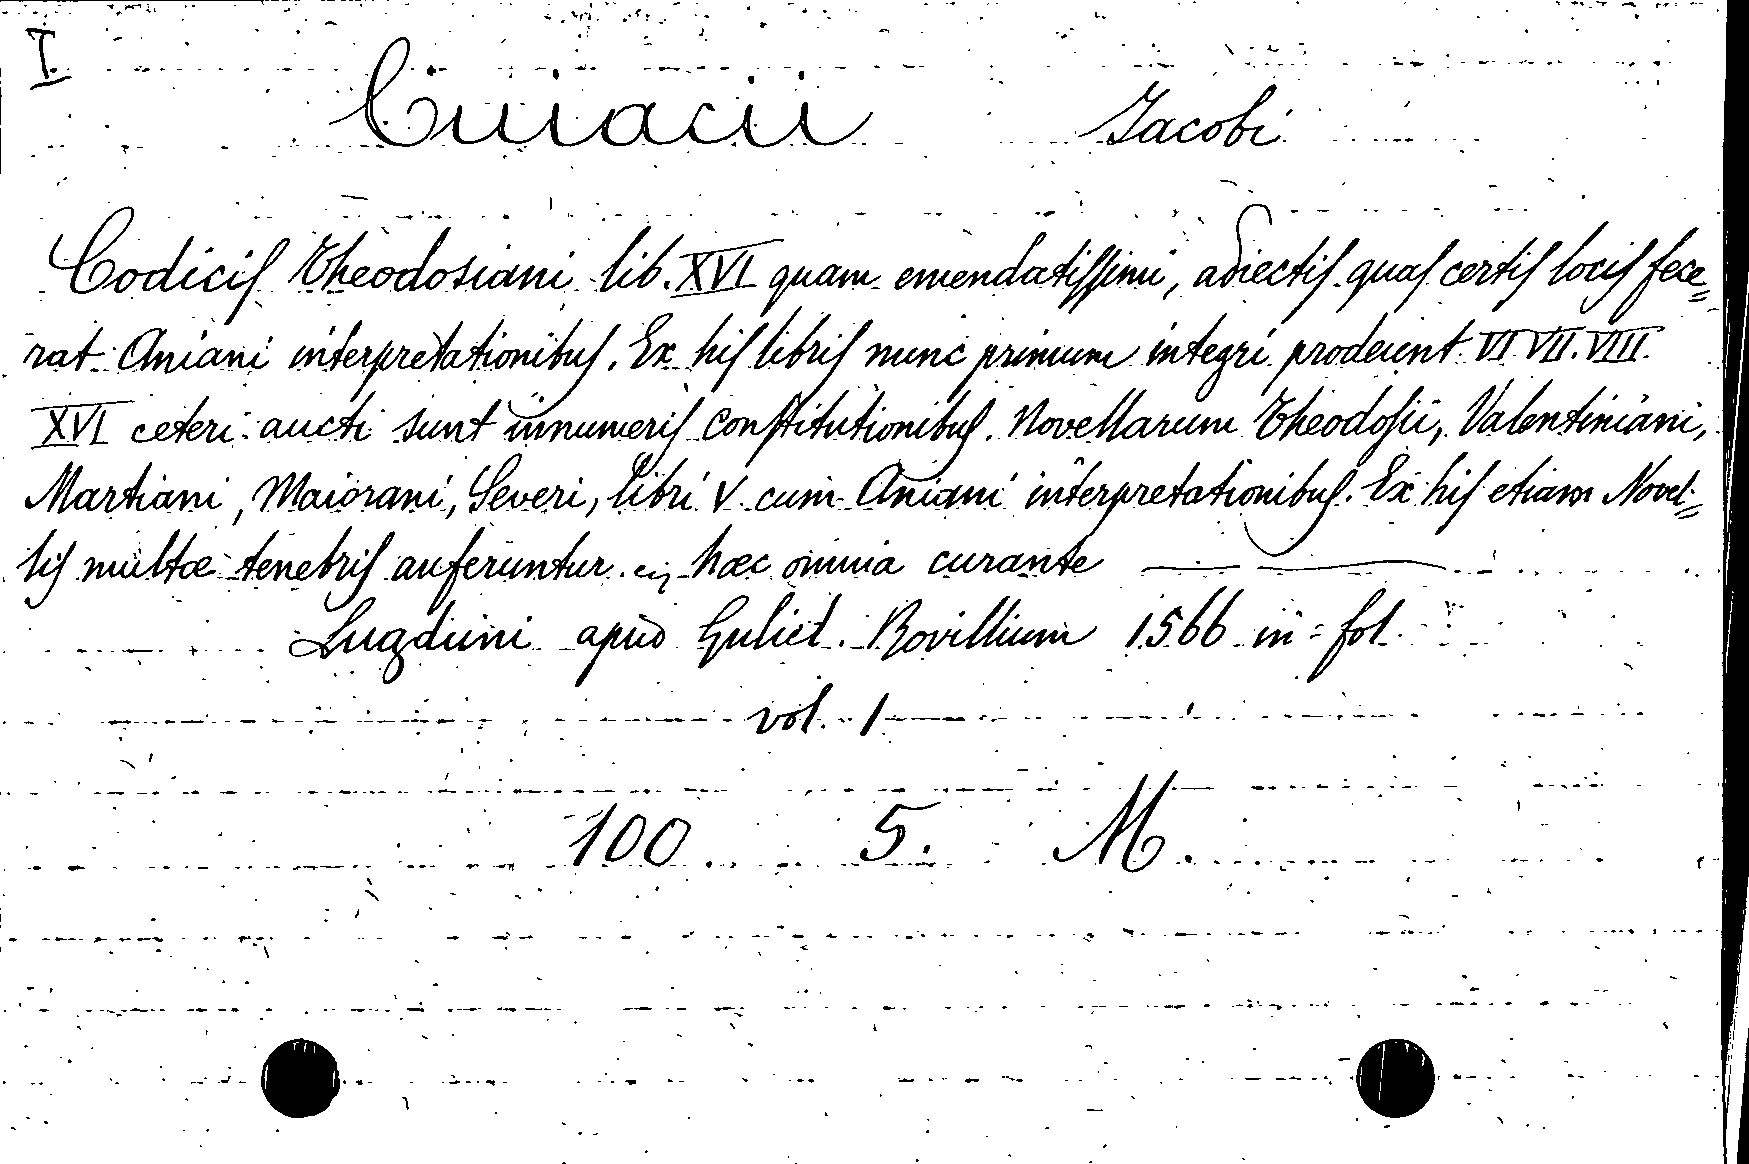 I
Cuiacii Jacobi
Codicis Theodosiani lib. XVI quam emendatissimi, adiectis quas certis locis fece=
rat Aniani interpretationibus. Ex his libris nunc primum integri prodeunt VI VII. VIII.
XVI ceteri aucti sunt innumeris constitutionibus. Novellarum Theodosii, Valentiniani,
Martiani, Maiorani, Severi, libri V cum Aniani interpretationibus. Ex his etiam Novel=
lis multæ tenebris auferuntur. hæc omnia curante ———
Lugduni apud Guliel. Rovillium 1566 in=fol.
vol. 1
100. 5. M.